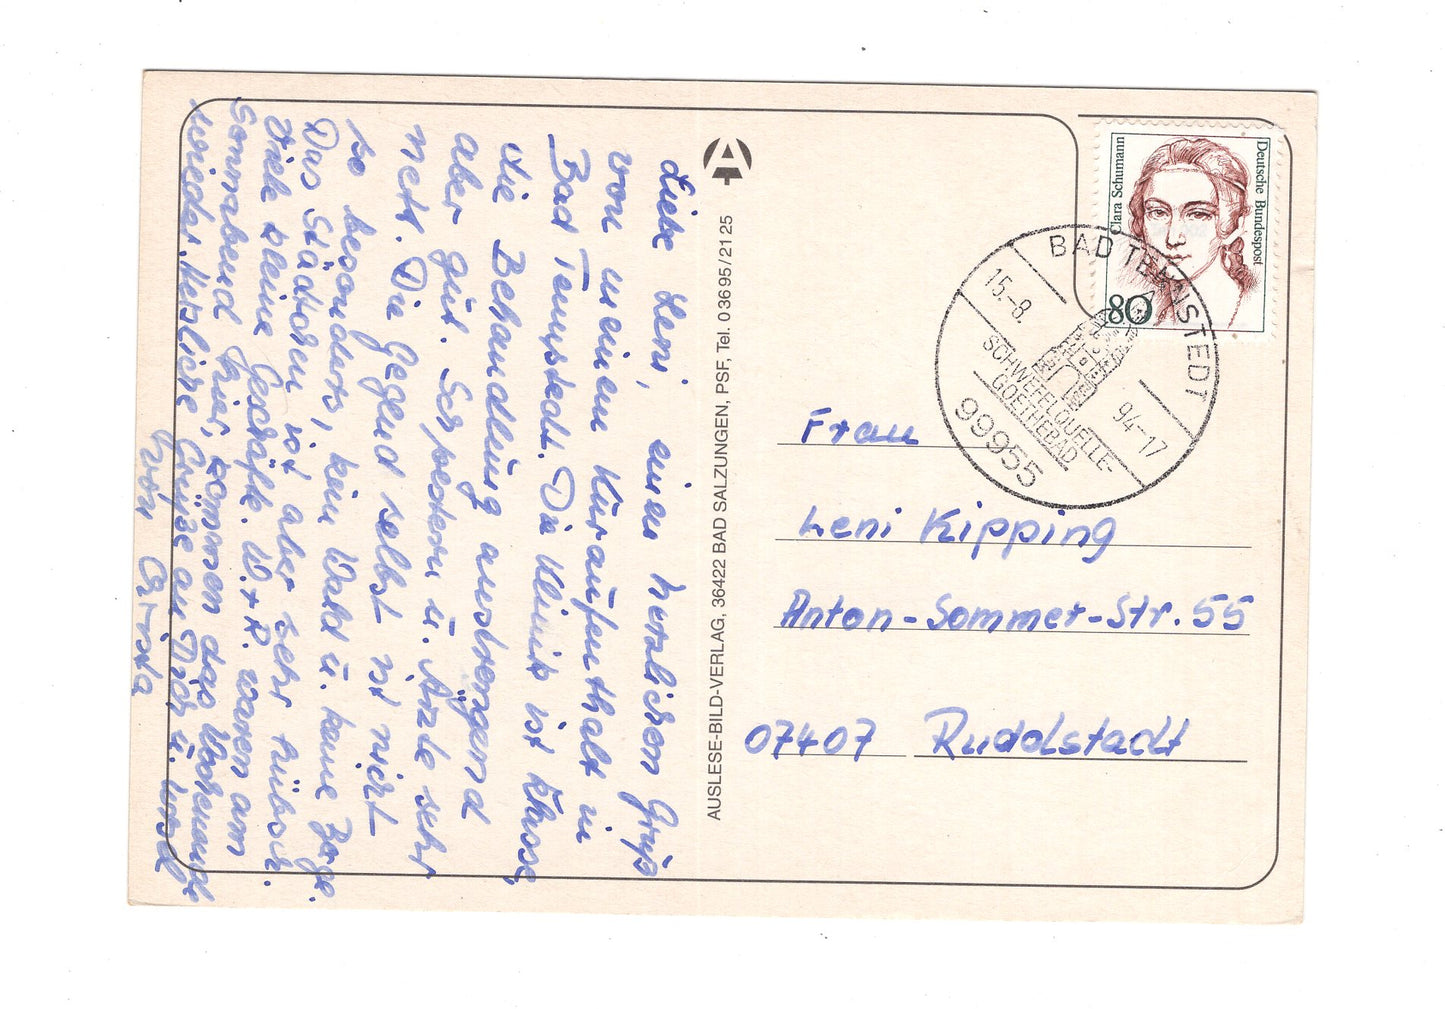 Liebe Leni, einen herzlichen Gruß
von meinem Kuraufenthalt in
Bad Tennstedt. Die Klinik ist Klasse,
die Behandlung anstrengend
aber gut. Schwestern u. Ärzte sehr
nett. Die Gegend selbst ist nicht
so besonders, kein Wald u. keine Berge.
Das Städtchen ist aber sehr hübsch.
Viele kleine Geschäfte. W. + R. waren am
Sonnabend hier, kommen das Wochenende
wieder. Herzliche Grüße an Dich u. Ursel
von Christa
AUSLESE-BILD-VERLAG, 36422 BAD SALZUNGEN, PSF, Tel. 03695/2125
Clara Schumann
Deutsche Bundespost
80
BAD TENNSTEDT
15.-8.
94-17
SCHWEFELQUELLE-
GOETHEBAD
99955
Frau
Leni Kipping
Anton-Sommer-Str. 55
07407 Rudolstadt